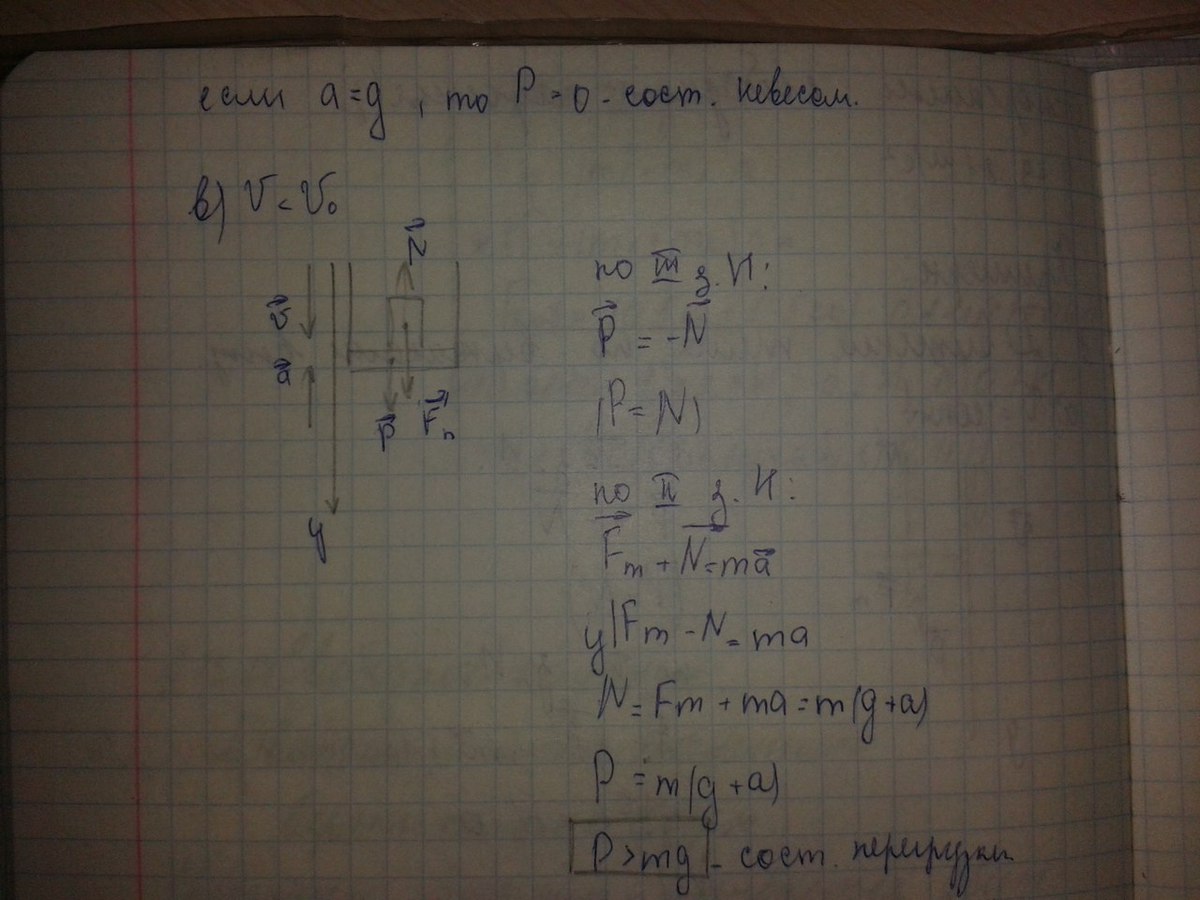 если a=g, то P=0 - сост. невесом.
в) V < V₀
N⃗
v⃗
a⃗
P⃗ F⃗т
y
по III з. Н:
P⃗ = -N⃗
(P=N)
по II з. Н:
F⃗т + N⃗ = ma⃗
y| Fт - N = ma
N = Fт + ma = m(g+a)
P = m(g+a)
P>mg - сост. перегрузки